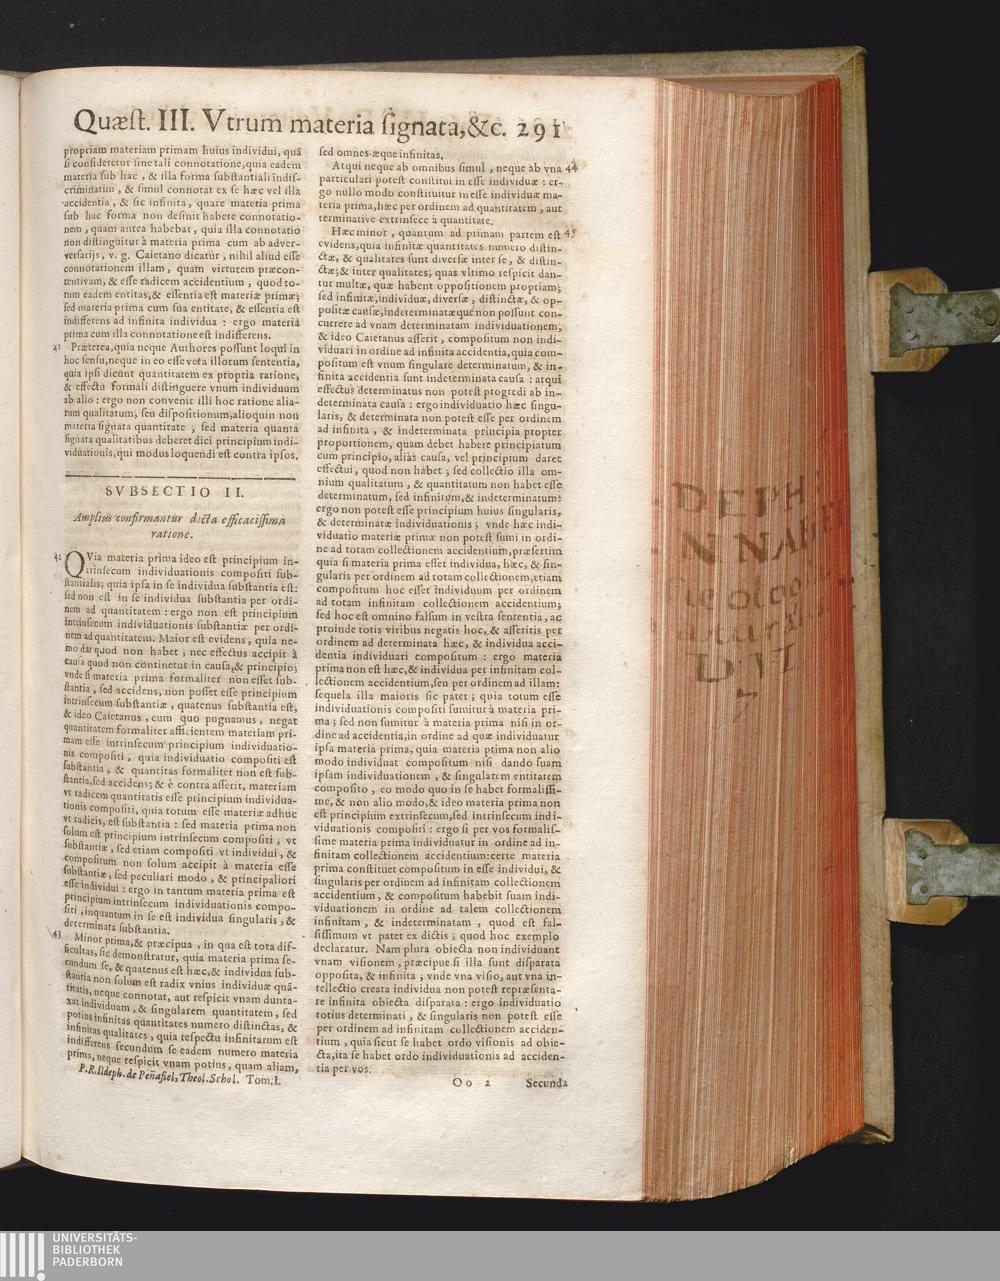 Quæſt. III. Vtrum materia ſignata, &c. 291
propriam materiam primam huius individui, quã
ſi conſideretur ſine tali connotatione, quia eadem
materia ſub hac, & illa forma ſubſtantiali indiſ-
criminatim, & ſimul connotat ex ſe hæc vel illa
accidentia, & ſic infinita, quare materia prima
ſub hac forma non deſinit habere connotatio-
nem, quam antea habebat, quia illa connotatio
non diſtinguitur à materia prima cum ab adver-
verſarijs, v. g. Caietano dicatur, nihil aliud eſſe
connotationem illam, quam virtutem præcon-
tentivam, & eſſe radicem accidentium, quod to-
tum eadem entitas, & eſſentia eſt materiæ primæ;
ſed materia prima cum ſua entitate, & eſſentia eſt
indifferens ad infinita individua : ergo materia
prima cum illa connotatione eſt indifferens.
41 Præterea, quia neque Authores poſſunt loqui in
hoc ſenſu, neque in eo eſſe vera illorum ſententia,
quia ipſi dicunt quantitatem ex propria ratione,
& effectu formali diſtinguere vnum individuum
ab alio : ergo non convenit illi hoc ratione alia-
rum qualitatum, ſeu diſpoſitionum, alioquin non
materia ſignata quantitate, ſed materia quanta
ſignata qualitatibus deberet dici principium indi-
viduationis, qui modus loquendi eſt contra ipſos.
SVBSECTIO II.
Amplius confirmantur dicta efficaciſſima
ratione.
42 QVia materia prima ideo eſt principium in-
trinſecum individuationis compoſiti ſub-
ſtantialis; quia ipſa in ſe individua ſubſtantia eſt:
ſed non eſt in ſe individua ſubſtantia per ordi-
nem ad quantitatem : ergo non eſt principium
intrinſecum individuationis ſubſtantiæ per ordi-
nem ad quantitatem. Maior eſt evidens, quia ne-
mo dat quod non habet; nec effectus accipit à
cauſa quod non continetur in cauſa, & principio;
vnde ſi materia prima formaliter non eſſet ſub-
ſtantia, ſed accidens, non poſſet eſſe principium
intrinſecum ſubſtantiæ, quatenus ſubſtantia eſt,
& ideo Caietanus, cum quo pugnamus, negat
quantitatem formaliter afficientem materiam pri-
mam eſſe intrinſecum principium individuatio-
nis compoſiti, quia individuatio compoſiti eſt
ſubſtantia, & quantitas formaliter non eſt ſub-
ſtantia, ſed accidens; & è contra aſſerit, materiam
vt radicem quantitatis eſſe principium individua-
tionis compoſiti, quia totum eſſe materiæ adhuc
vt radicis, eſt ſubſtantia : ſed materia prima non
ſolum eſt principium intrinſecum compoſiti, vt
ſubſtantiæ, ſed etiam compoſiti vt individui, &
compoſitum non ſolum accipit à materia eſſe
ſubſtantiæ, ſed peculiari modo, & principaliori
eſſe individui : ergo in tantum materia prima eſt
principium intrinſecum individuationis compo-
ſiti, inquantum in ſe eſt individua ſingularis, &
determinata ſubſtantia.
43 Minor prima, & præcipua, in qua eſt tota dif-
ficultas, ſic demonſtratur, quia materia prima ſe-
cundum ſe, & quatenus eſt hæc, & individua ſub-
ſtantia non ſolum eſt radix vnius individuæ quã-
titatis, neque connotat, aut reſpicit vnam dunta-
xat individuam, & ſingularem quantitatem, ſed
potius infinitas quantitates numero diſtinctas, &
infinitas qualitates, quia reſpectu infinitarum eſt
indifferens ſecundum ſe eadem numero materia
prima, neque reſpicit vnam potius, quam aliam,
P. R. Ildeph. de Peñafiel, Theol. Schol. Tom. I.
ſed omnes æque infinitas.
Atqui neque ab omnibus ſimul, neque ab vna 44
particulari poteſt conſtitui in eſſe individuæ : er-
go nullo modo conſtituitur in eſſe individuæ ma-
teria prima, hæc per ordinem ad quantitatem, aut
terminative extrinſece à quantitate.
Hæc minor, quantum ad primam partem eſt 45
evidens, quia infinitæ quantitates numero diſtin-
ctæ, & qualitates ſunt diverſæ inter ſe, & diſtin-
ctæ; & inter qualitates; quas vltimo reſpicit dan-
tur multæ, quæ habent oppoſitionem propriam;
ſed infinitæ, individuæ, diverſæ, diſtinctæ, & op-
poſitæ cauſæ, indeterminatæque non poſſunt con-
currere ad vnam determinatam individuationem;
& ideo Caietanus aſſerit, compoſitum non indi-
viduari in ordine ad infinita accidentia, quia com-
poſitum eſt vnum ſingulare determinatum, & in-
finita accidentia ſunt indeterminata cauſa : atqui
effectus determinatus non poteſt progredi ab in-
determinata cauſa : ergo individuatio hæc ſingu-
laris, & determinata non poteſt eſſe per ordinem
ad infinita, & indeterminata principia propter
proportionem, quam debet habere principiatum
cum principio, aliàs cauſa, vel principium daret
effectui, quod non habet; ſed collectio illa om-
nium qualitatum, & quantitatum non habet eſſe
determinatum, ſed infinitum, & indeterminatum:
ergo non poteſt eſſe principium huius ſingularis,
& determinatæ individuationis; vnde hæc indi-
viduatio materiæ primæ non poteſt ſumi in ordi-
ne ad totam collectionem accidentium, præſertim
quia ſi materia prima eſſet individua, hæc, & ſin-
gularis per ordinem ad totam collectionem, etiam
compoſitum hoc eſſet individuum per ordinem
ad totam infinitam collectionem accidentium;
ſed hoc eſt omnino falſum in veſtra ſententia, ac
proinde totis viribus negatis hoc, & aſſeritis per
ordinem ad determinata hæc, & individua acci-
dentia individuari compoſitum : ergo materia
prima non eſt hæc, & individua per infinitam col-
lectionem accidentium, ſeu per ordinem ad illam:
ſequela illa maioris ſic patet; quia totum eſſe
individuationis compoſiti ſumitur à materia pri-
ma; ſed non ſumitur à materia prima niſi in or-
dine ad accidentia, in ordine ad quæ individuatur
ipſa materia prima, quia materia prima non alio
modo individuat compoſitum niſi dando ſuam
ipſam individuationem, & ſingularem entitatem
compoſito, eo modo quo in ſe habet formaliſſi-
me, & non alio modo, & ideo materia prima non
eſt principium extrinſecum, ſed intrinſecum indi-
viduationis compoſiti : ergo ſi per vos formaliſ-
ſime materia prima individuatur in ordine ad in-
finitam collectionem accidentium: certe materia
prima conſtituet compoſitum in eſſe individui, &
ſingularis per ordinem ad infinitam collectionem
accidentium, & compoſitum habebit ſuam indi-
viduationem in ordine ad talem collectionem
infinitam, & indeterminatam, quod eſt fal-
ſiſſimum vt patet ex dictis; quod hoc exemplo
declaratur. Nam plura obiecta non individuant
vnam viſionem, præcipue ſi illa ſunt diſparata
oppoſita, & infinita; vnde vna viſio, aut vna in-
tellectio creata individua non poteſt repræſenta-
re infinita obiecta diſparata : ergo individuatio
totius determinati, & ſingularis non poteſt eſſe
per ordinem ad infinitam collectionem acciden-
tium, quia ſicut ſe habet ordo viſionis ad obie-
cta, ita ſe habet ordo individuationis ad acciden-
tia per vos.
Oo 2 Secunda
DEPH
UNIVERSITÄTS-
BIBLIOTHEK
PADERBORN